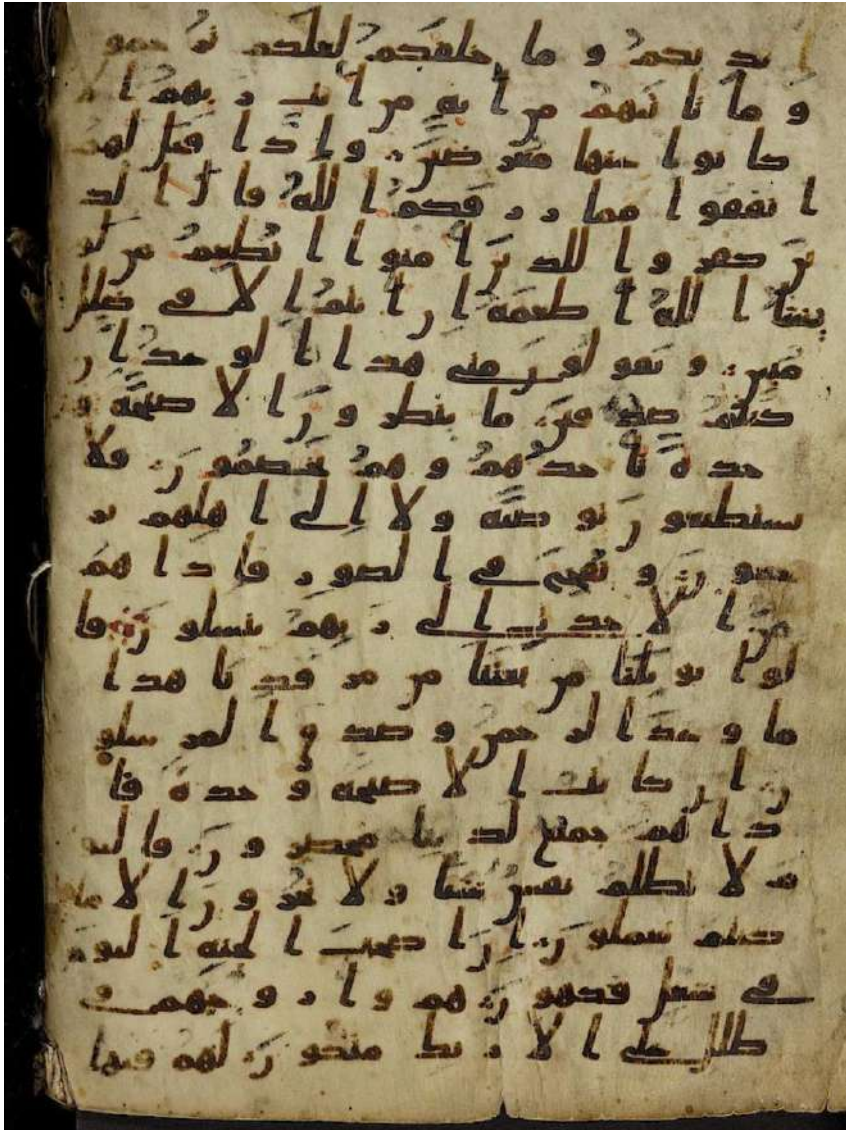 يديكم وما خلفكم لعلكم ترحمو
وما تاتيهم من اية من ايت ربهم ا
كانوا عنها معرضين واذا قيل لهم
انفقوا مما رزقكم الله قال الذ
ين كفروا للذين امنوا انطعم من لو
يشا الله اطعمه ان انتم الا في ضلل
مبين ويقولون متى هذا الوعد ان
كنتم صدقين ما ينظرون الا صيحة و
حدة تاخذهم وهم يخصمون فلا
يستطيعون توصية ولا الى اهلهم ير
جعون ونفخ في الصور فاذا هم
من الاجدث الى ربهم ينسلون قا
لوا يويلنا من بعثنا من مرقدنا هذا
ما وعد الرحمن وصدق المرسلو
ن ان كانت الا صيحة وحدة فا
ذا هم جميع لدينا محضرون فاليو
م لا تظلم نفس شيا ولا تجزون الا ما
كنتم تعملون ان اصحب الجنة اليوم
في شغل فكهون هم وازوجهم في
ظلل على الاريك متكون لهم فيها